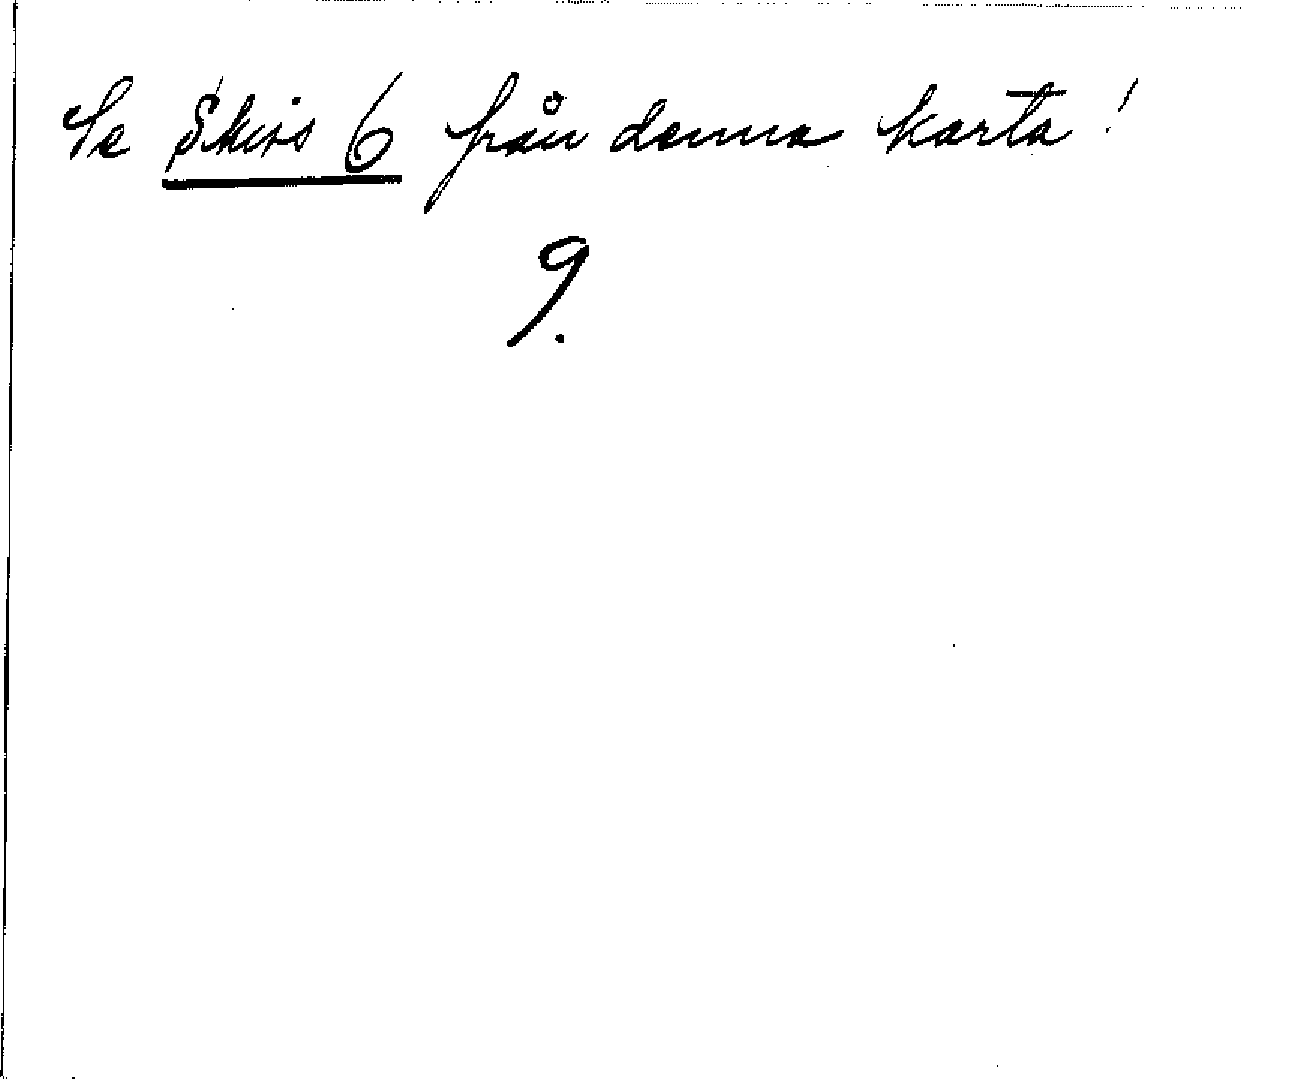 Se Skiss 6 från denna karta!
9.